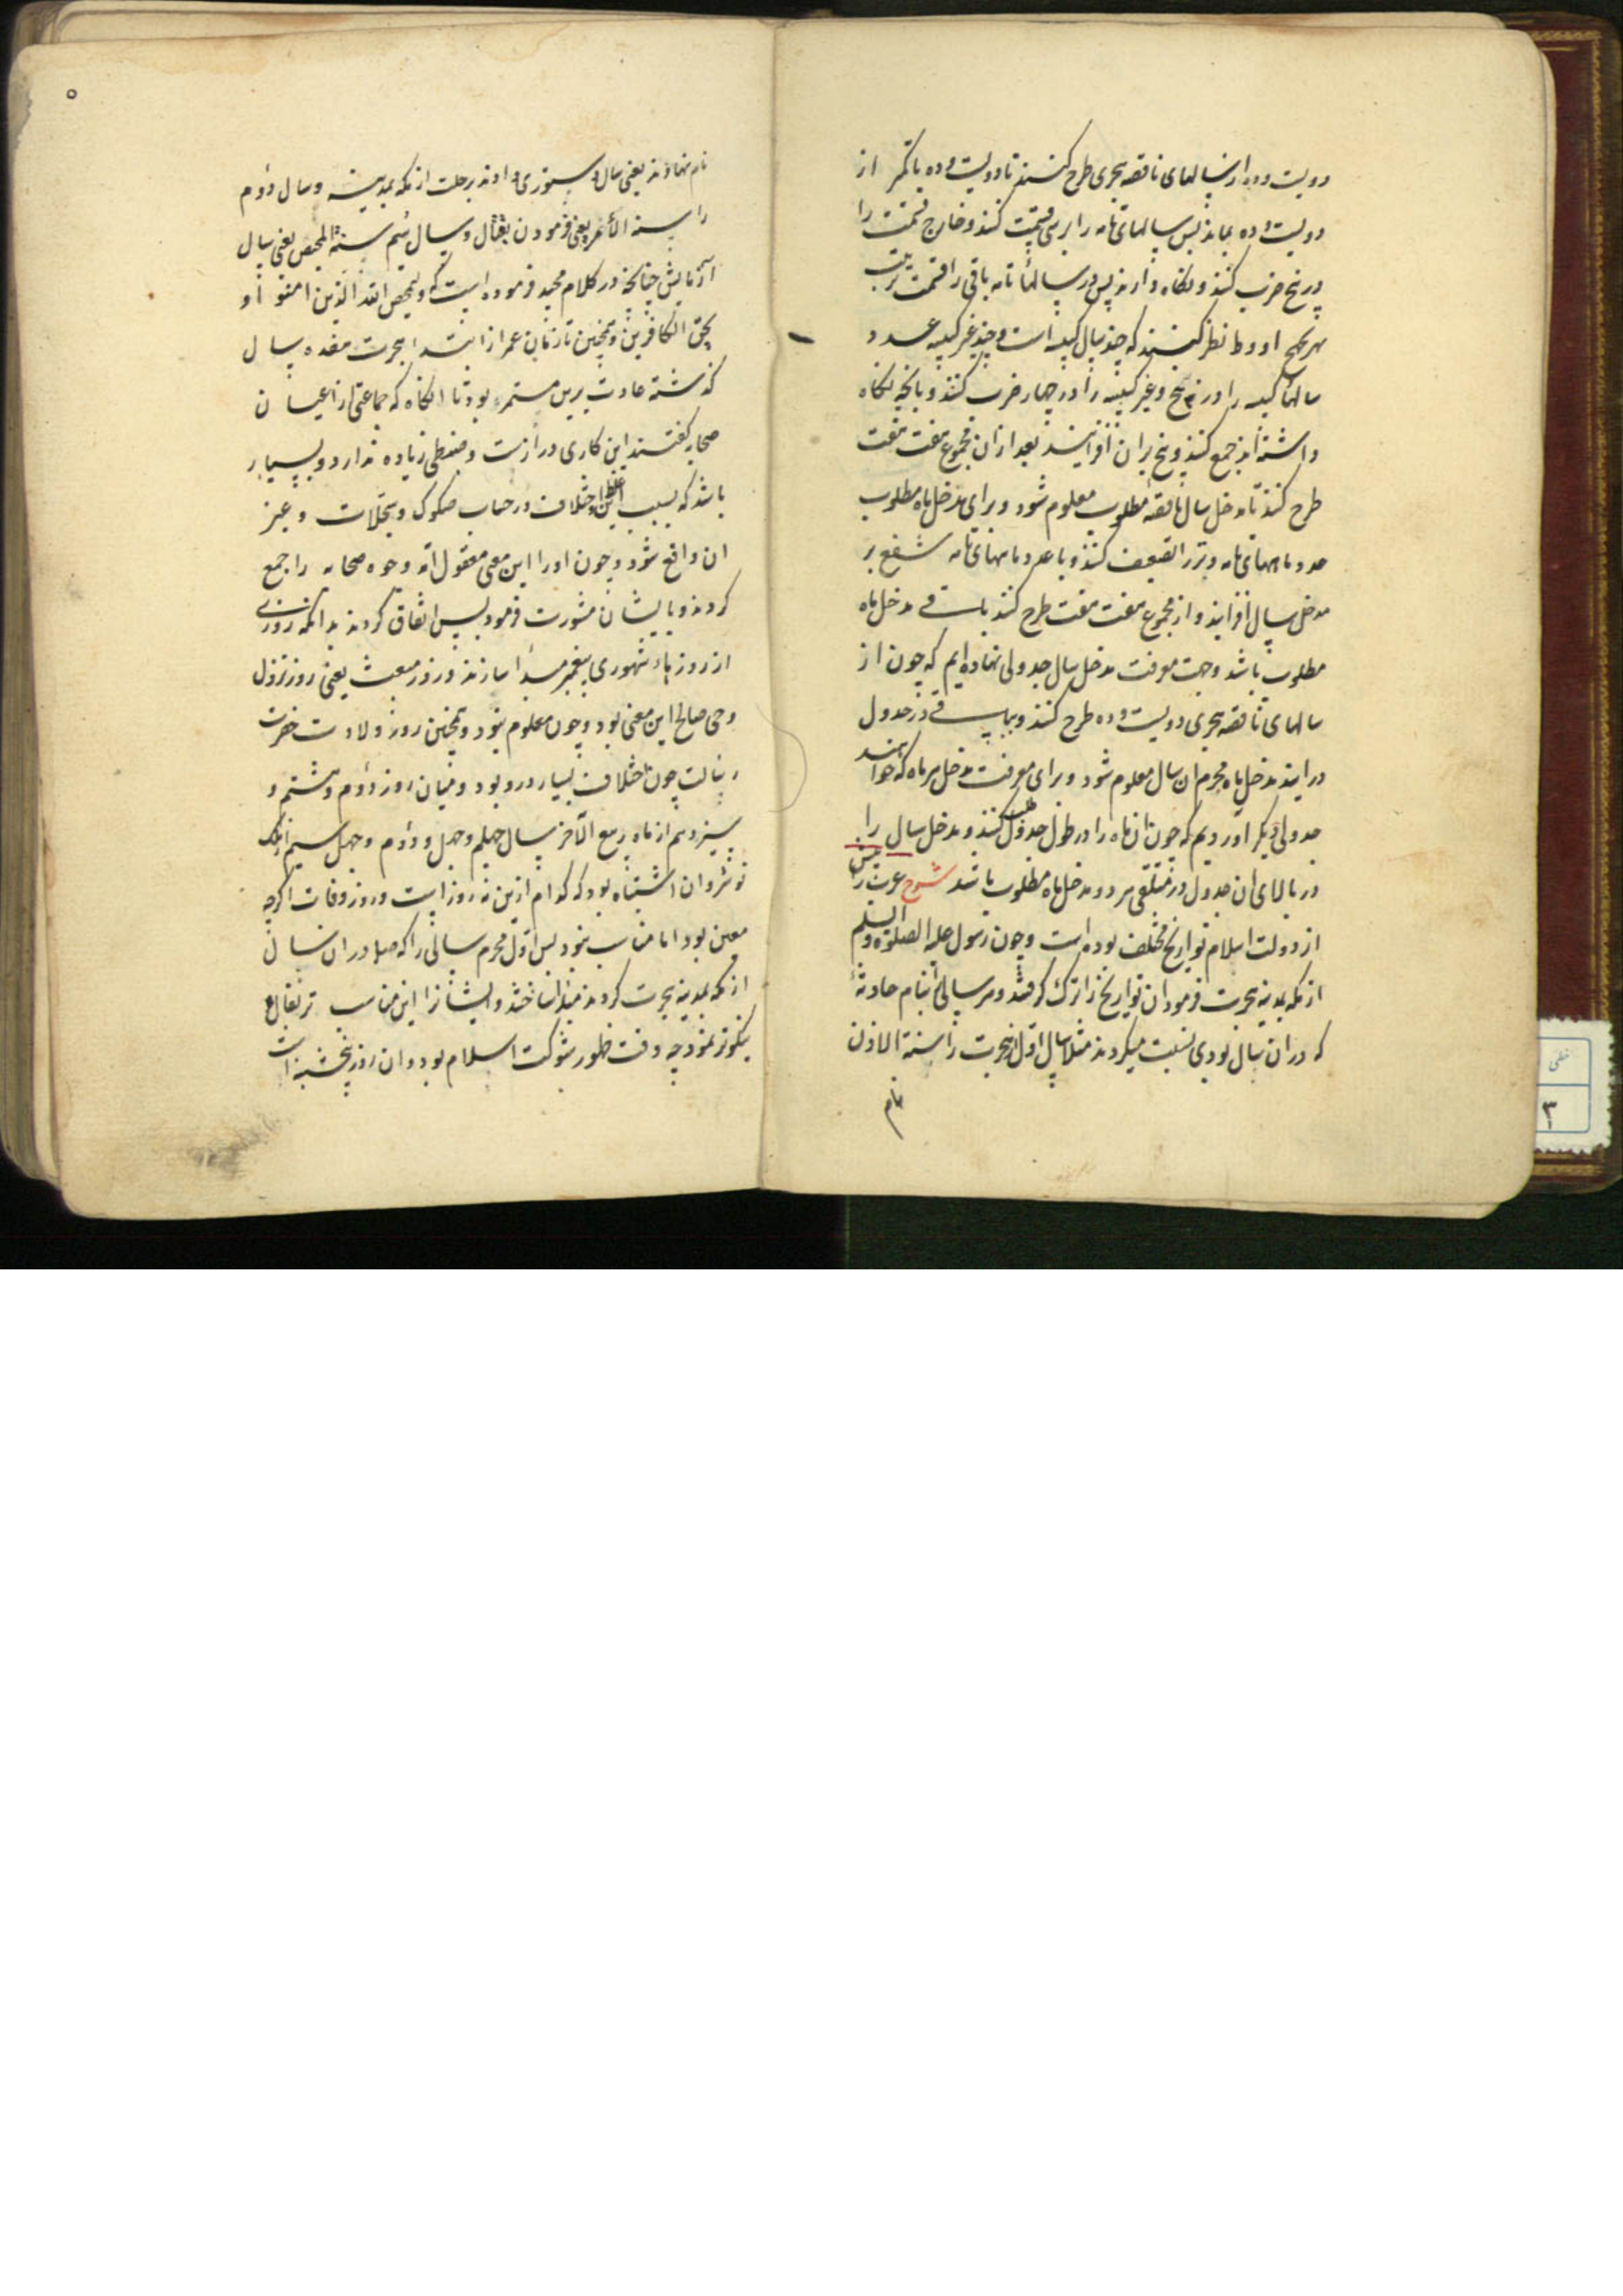 دویست و ده از سالهای ناقصه هجری طرح کنند تا دویست و ده یا کمتر از
دویست و ده بماند پس سالهای تامه را بر سی قسمت کنند و خارج قسمت را
در پنج ضرب کنند و نگاه دارند پس در سالها تامه باقی را قسمت
بهزیجج ادوط نظر کنند که چند سال کبیسه است و چند غیر کبیسه عدد
سالها کبیسه را در پنج و غیر کبیسه را در چهار ضرب کنند و بانچه نگاه
داشته اند جمع کنند و پنج بر آن افزایند بعد از آن مجموع هفت هفت
طرح کنند تا مدخل سال ناقصه مطلوب معلوم شود و برای مدخل ماه مطلوب
عدد ماههای تامه وتر را تضعیف کنند و با عدد ماههای تامه شفع بر
مدخل سال افزایند و از مجموع هفت هفت طرح کنند باقی مدخل ماه
مطلوب باشد و جهت معرفت مدخل سال جدولی نهاده ایم که چون از
سالهای ناقصه هجری دویست و ده طرح کنند و بباقی در جدول
درایند مدخل ماه محرم ان سال معلوم شود و برای معرفت مدخل هر ماه که خواهند
جدولی دیگر اوردیم که چون ان ماه را در طول جدول طلب کنند و مدخل سال را
در بالای ان جدول در ملتقی هر دو مدخل ماه مطلوب باشد شرح عرب را پیش
از دولت اسلام تواریخ مختلف بوده است و چون رسول علیه الصلوة والسلم
از مکه بمدینه هجرت فرمود ان تواریخ را ترک گرفتند و هر سالی بنام حادثهٔ
که در ان سال بودی نسبت میکردند مثلا سال اول از هجرت را سنة الاذن
نام
۵
نام نهادند یعنی سال دستوری دادند برحلت از مکه بمدینه و سال دوم
را سنة الأمر یعنی فرمودن بقتال و سال سیم سنة التمحیص یعنی سال
ازمایش چنانکه در کلام مجید فرموده است که ولیمحص الله الذین امنوا و
یمحق الکافرین و همچنین تا زمان عمر از ابتدا هجرت هفده سال
گذشته عادت برین مستمر بود تا انگاه که جماعتی از اعیان
صحابه گفتند این کاری درازست و ضبطی زیاده ندارد و بسیار
باشد که بسبب این اختلاف در حساب صکوک و سجلات و غیر
ان واقع شود و چون او را این معنی معقول آمد وجوه صحابه را جمع
کردند و با یشان مشورت فرمود پس اتفاق کردند بدانکه روزی
از روزهاء شهوری پیغمبر مبدأ سازند و روز مبعث یعنی روز نزول
وحی صالح این معنی بود و چون معلوم نبود و همچنین روز ولادت حضرت
رسالت چون اختلاف بسیار درو بود و میان روز دوم و هشتم و
سیزدهم از ماه ربیع الآخر سال چهلم و چهل و دوم و چهل سیم از ملک
نوشروان اشتباه بود که کدام ازین نه روز است و روز وفات اگرچه
معین بود اما مناسب نبود پس اول محرم سالی را که صلم در ان سال
از مکه بمدینه هجرت کردند مبدأ ساختند و ایشان را این مناسب تر بفال
نیکوتر نمود چه وقت ظهور شوکت اسلام بود و ان روز پنجشنبه است
۳